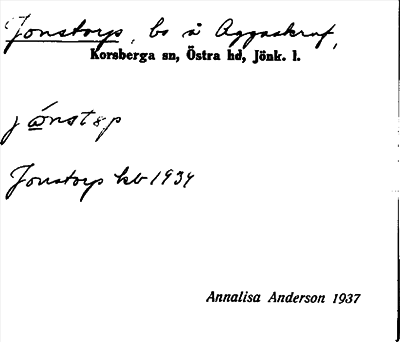 Jonstorp, bs å Aggaskruf,
Korsberga sn, Östra hd, Jönk. l.
jónstɛp
Jonstorp kb 1934
Annalisa Anderson 1937